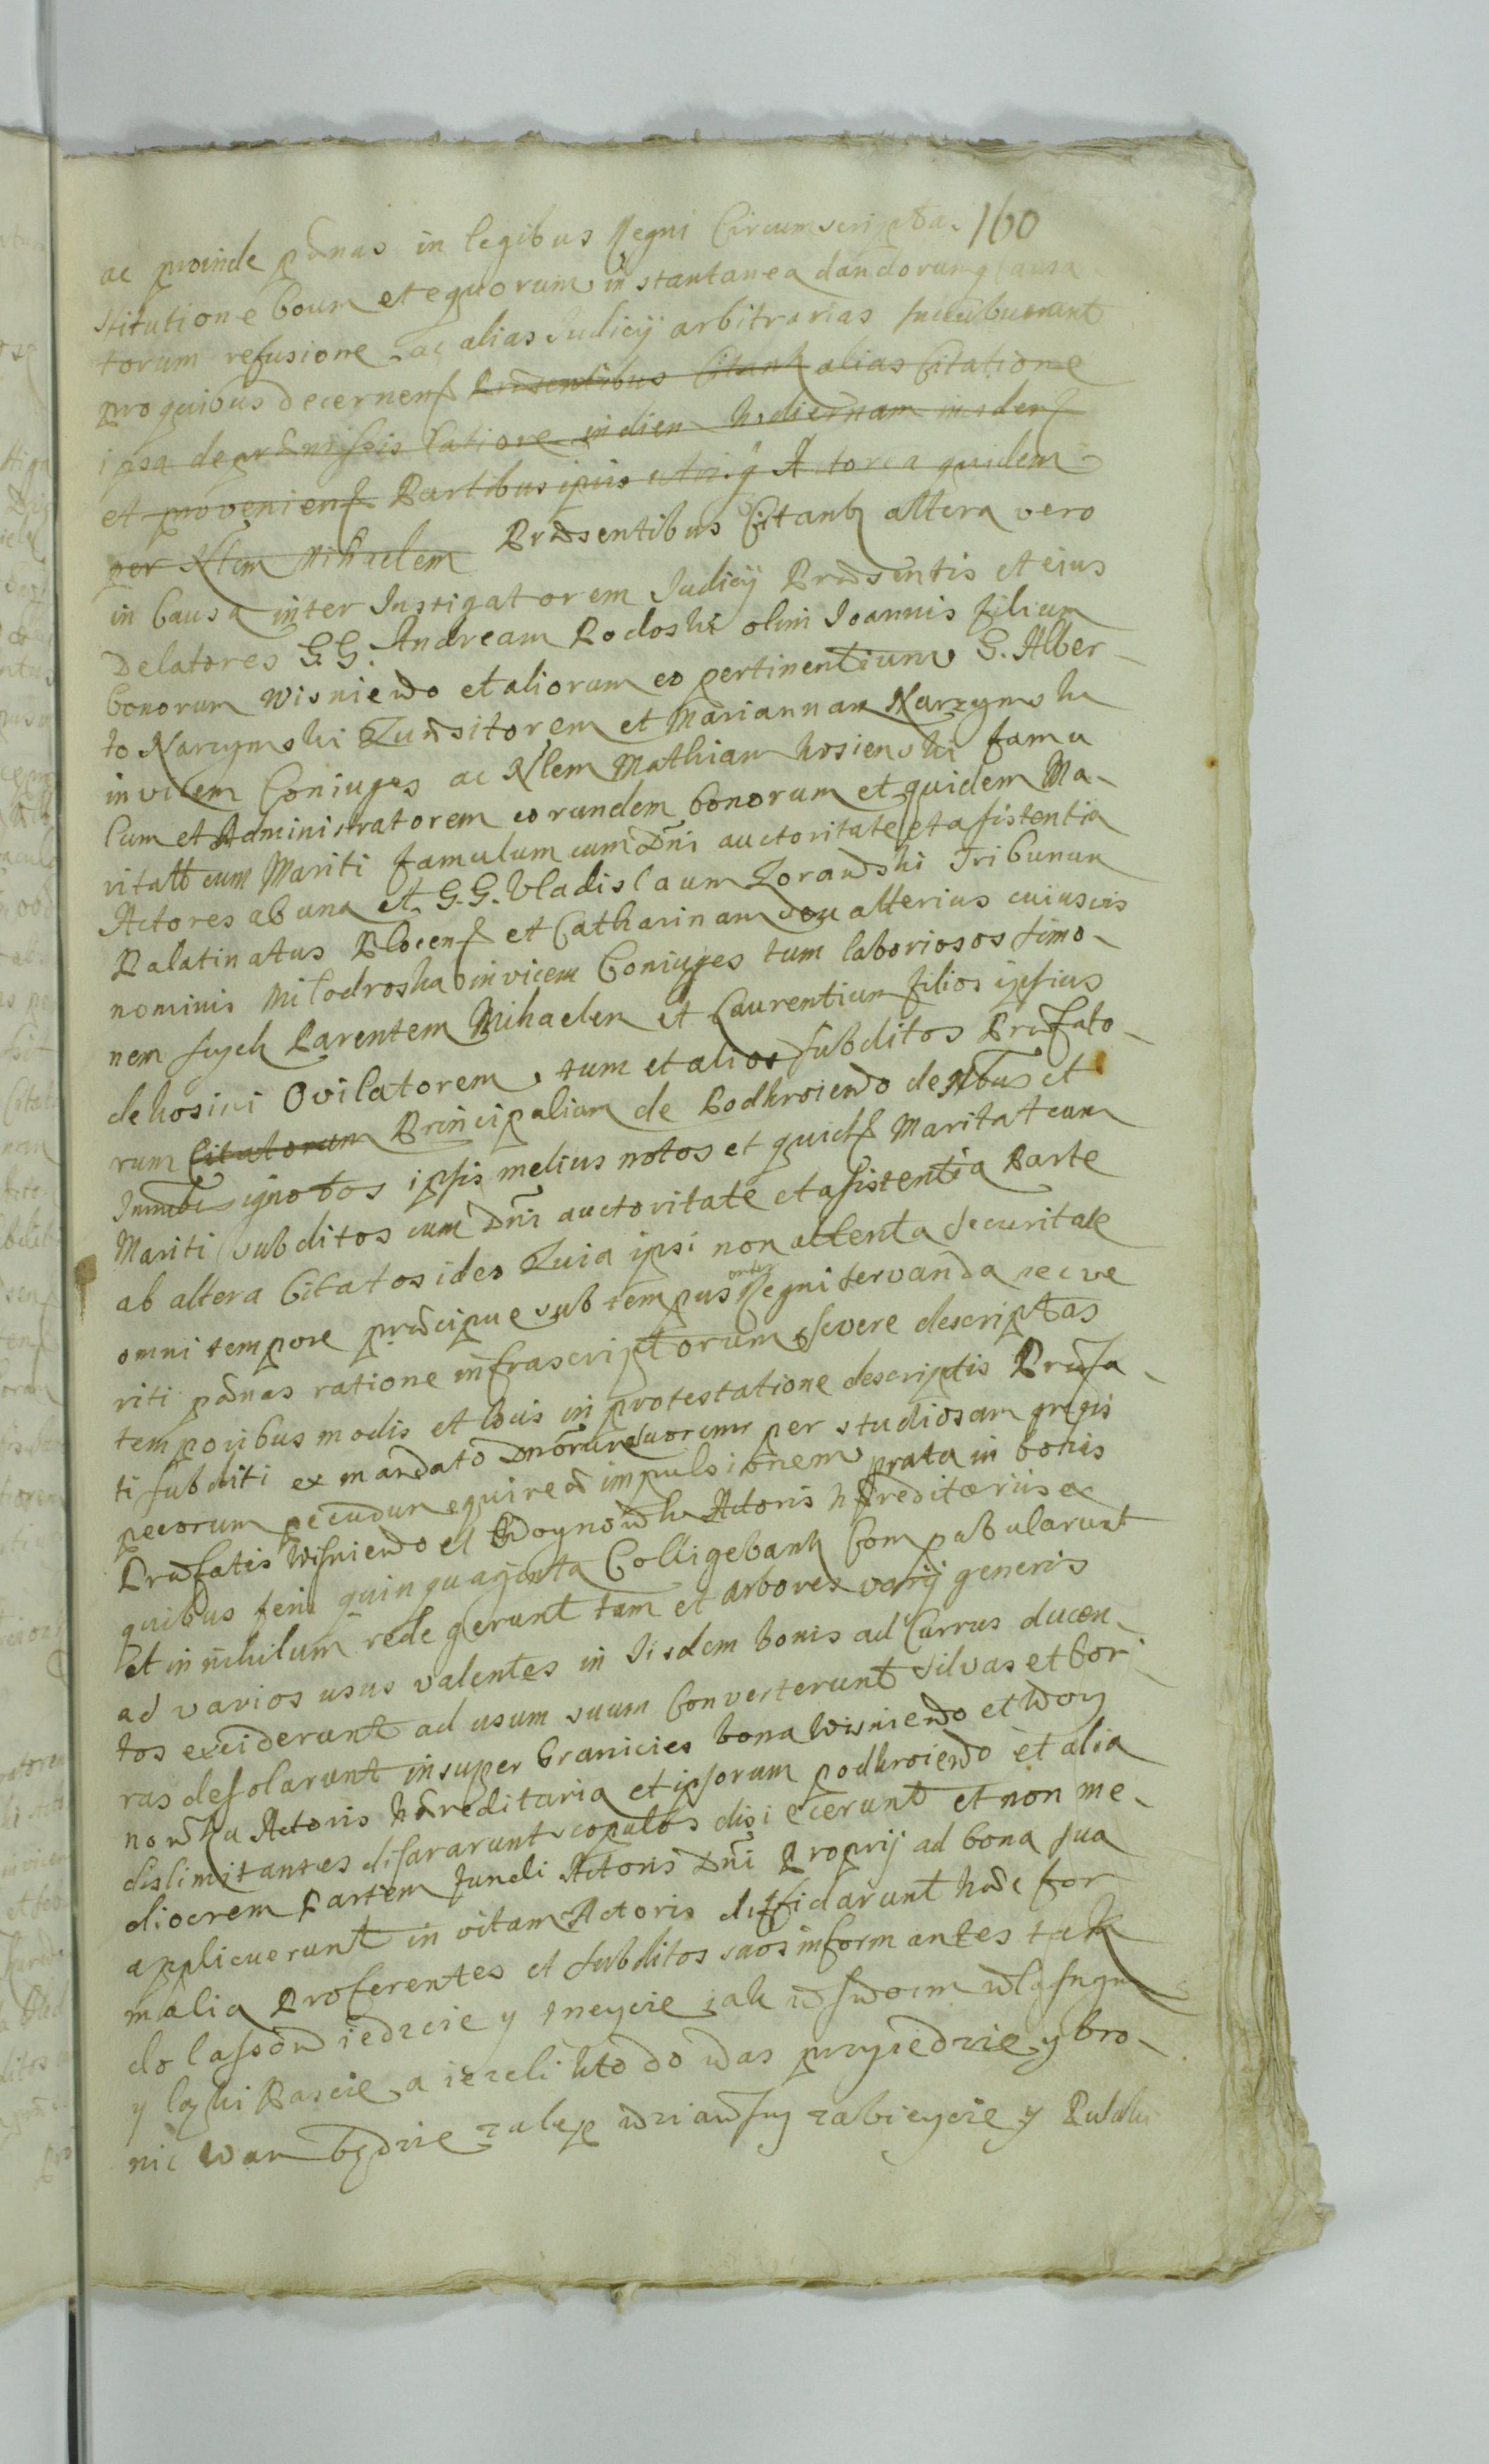 160
ac proinde pœnas in legibus Regni Circumscriptas
stitutione boum et equorum instantanea dandorumq
torum refusione ac alias Judicij arbitrarias succubuerunt
pro quibus decernen alias Citatione
ipsa de præmissis ratione in diem hodiernam
et provenien Partibus ipsis Actorea quidem
per Nlem Mihaelem Præsentibus Citant altera vero
in Causa inter Instigatorem Judicij Præsentis et eius
Delatores G.G. Andream Podoski olim Joannis filium
bonorum Wisniewo et aliorum eo pertinentium G. Alber-
to Narzymski Quæsitorem et Mariannam Narzymska
invicem Coniuges ac Nlem Mathiam Kosienski famu
lum et Administratorem eorundem bonorum et quidem Ma-
ritatt cum Mariti famulum cum Dni auctoritate et assistentia
Actores ab una et G.G. Vladislaum Zorawski Tribunum
Palatinatus Plocen et Catharinam seu alterius cuiusvis
nominis Milodroska invicem Coniuges tum laboriosos Simo-
nem Parentem Mihaelem et Laurentium filios ipsius
de Kosini Ovilatorem, tum et alios subditos Præfato-
rum Citatorum Principalium de Podkroiewo de Nbus et
ignotos ipsis melius notos et quid Maritat cum
Mariti subditos cum Dni auctoritate et assistentia Parte
ab altera Citatos ideo Quia ipsi non attenta securitate
omni tempore præcipue sub tempus Regni servanda nec ve
riti pœnas ratione infrascriptorum severe descriptas
temporibus modis et locis in protestatione descriptis Præfa-
ti subditi ex mandato Dnorum suorum per studiosam gregis
pecorum pecudum equireæ impulsionem prata in bonis
Præfatis Wisniewo et Woynowka Actoris hæreditariis ex
quibus feni quinquaginta Colligebant Compabularunt
et in nihilum redegerunt tam et arbores varij generis
ad varios usus valentes in Iisdem bonis ad Currus ducen-
tos exciderunt ad usum suum Converterunt silvas et bor-
ras desolarunt insuper Granicies bona Wisniewo et Woy
nowka Actoris hæreditaria et ipsorum podkroiewo et alia
dislimitantes disararunt scopulos disiecerunt et non me-
diocrem Partem fundi Actoris Dni Proprij ad bona sua
applicuerunt in vitam Actoris diffidarunt hæc for
malia Proferentes et subditos suos informantes tak
do lassow iedzcie y tak w swoim własnym
y łąki Pascie a iezeli kto do was przyiedzie y bro-
nic wam będzie zabicycie y